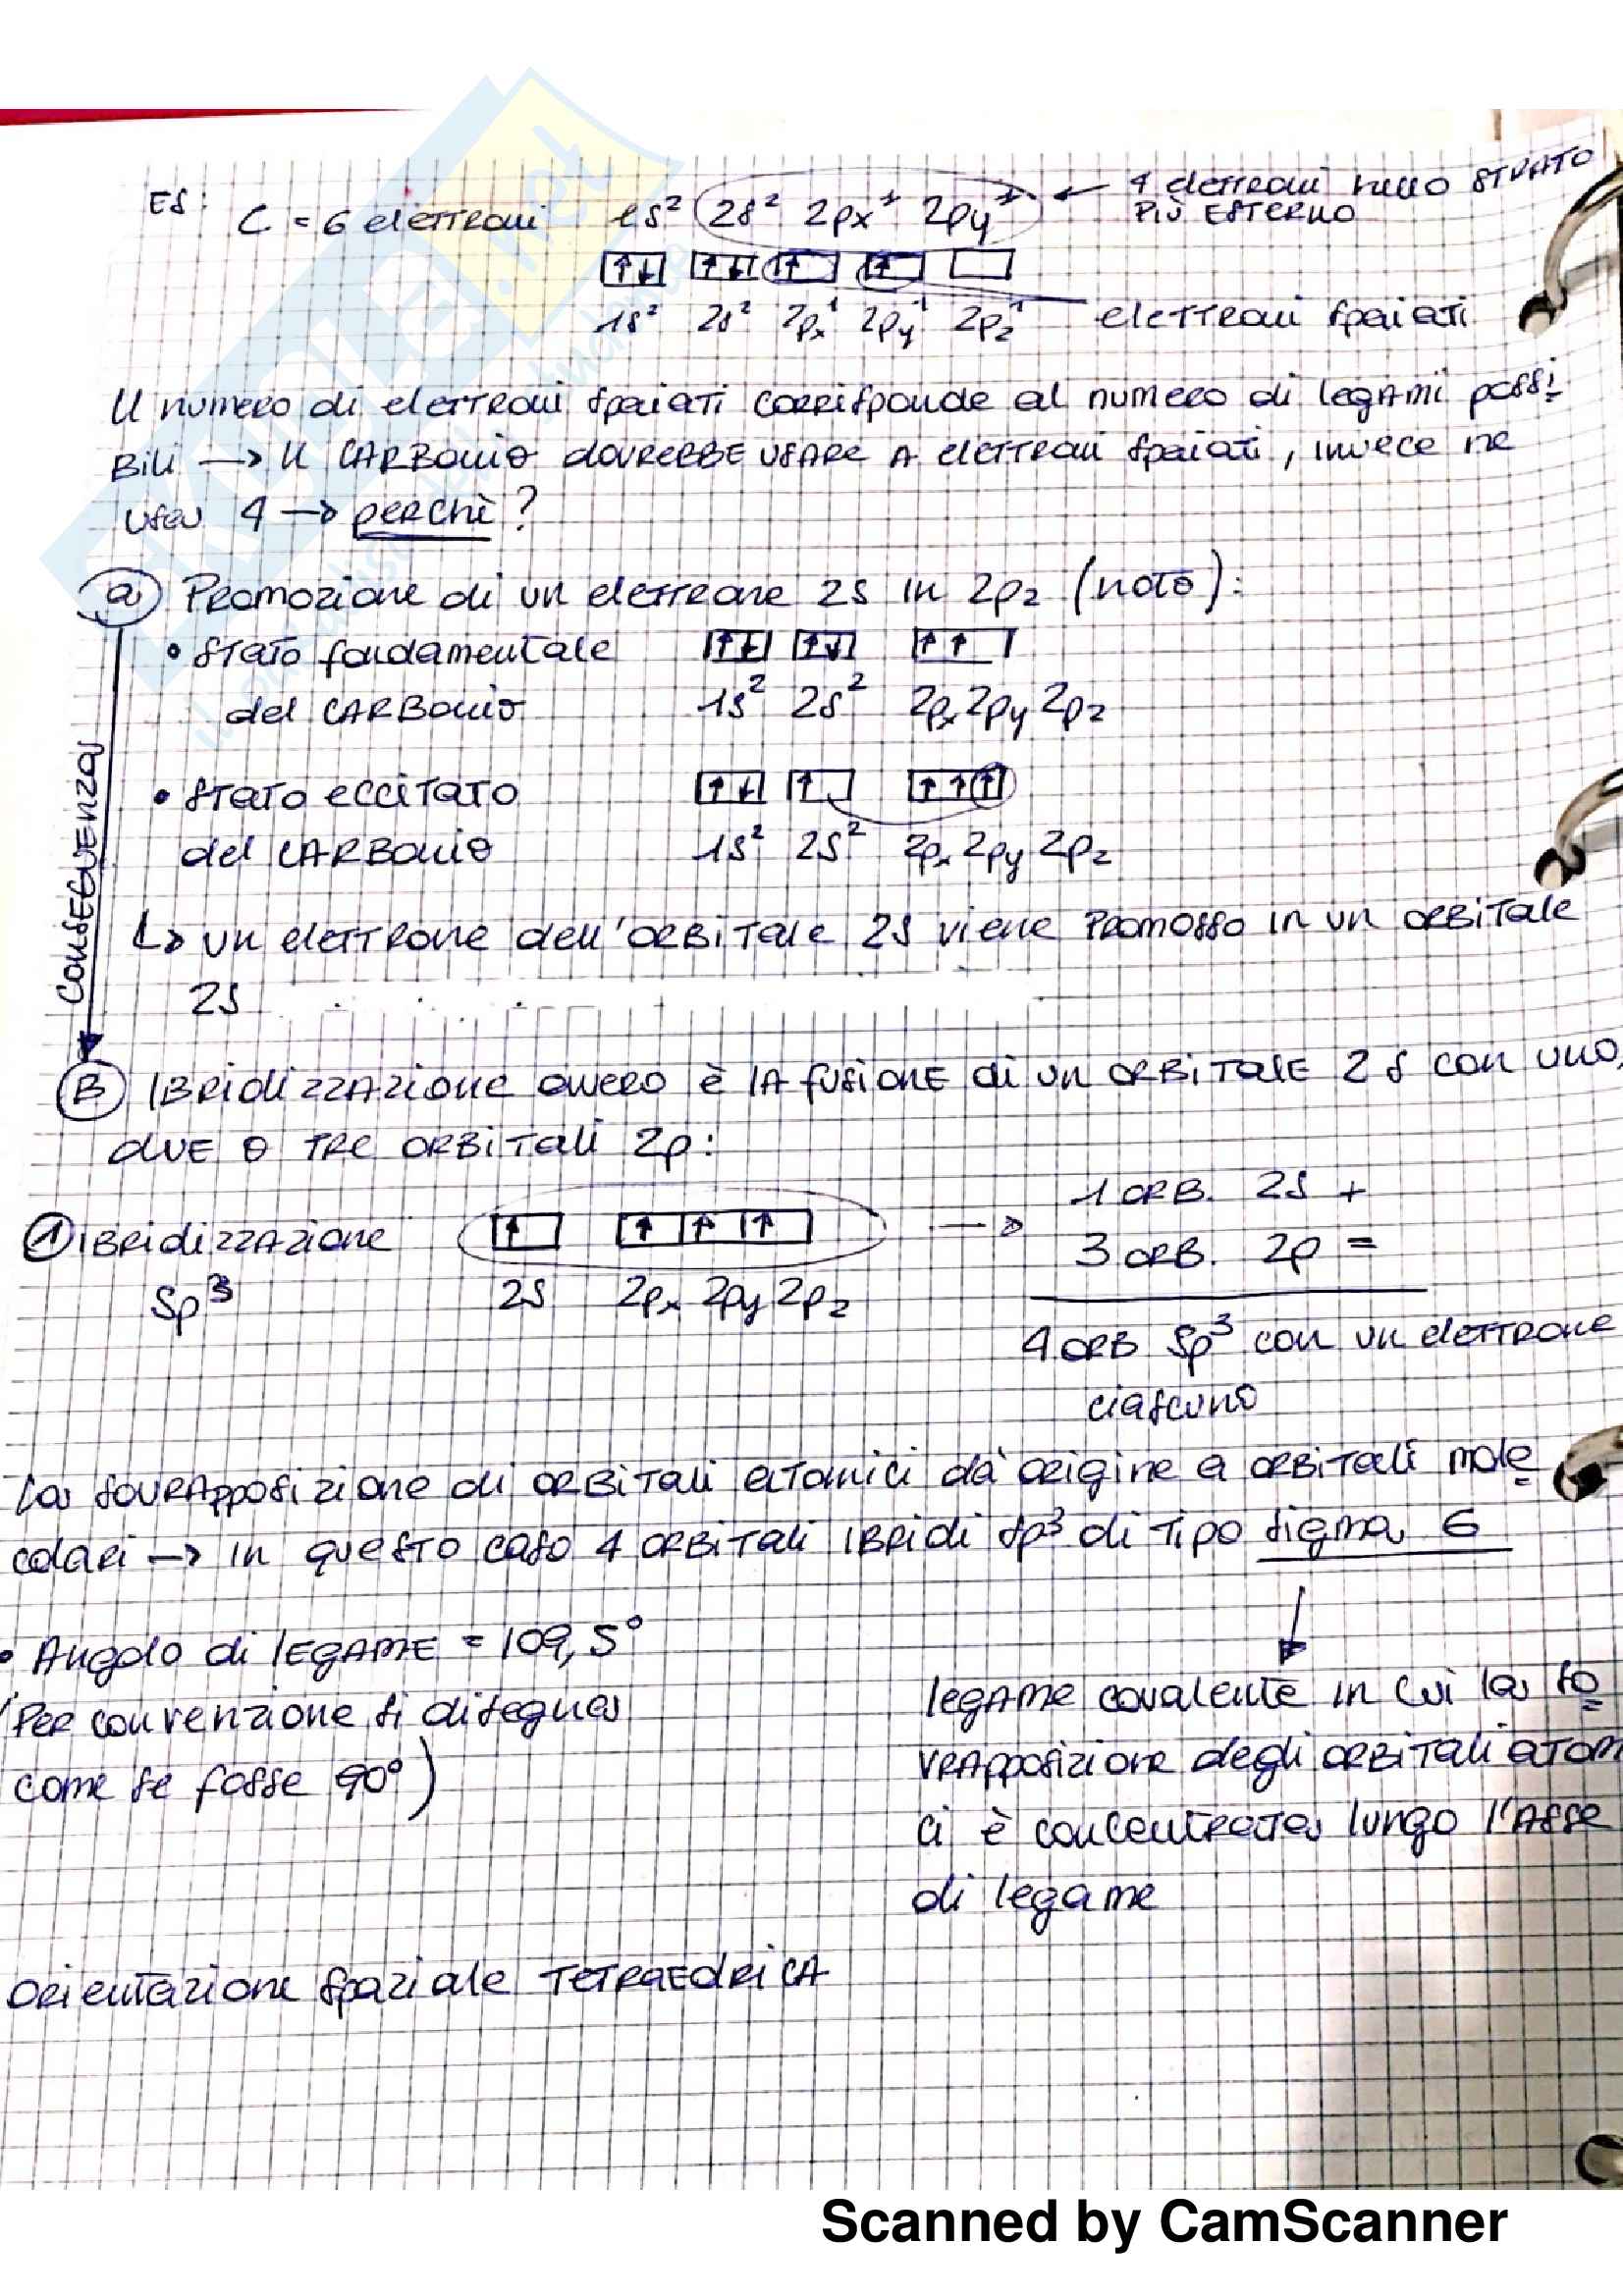 ES: C = 6 elettroni 1s² 2s² 2px¹ 2py¹ ← 4 elettroni nello STRATO
PIÙ ESTERNO
↑↓ ↑↓ ↑ ↑
1s² 2s² 2px¹ 2py¹ 2pz¹ elettroni spaiati
Il numero di elettroni spaiati corrisponde al numero di legami possi
Bili → Il CARBonio dovrebbe usare 2 elettroni spaiati, invece ne
usa 4 → perchè?
a) Promozione di un elettrone 2s in 2pz (noto):
• Stato fondamentale ↑↓ ↑↓ ↑ ↑
del CARBonio 1s² 2s² 2px 2py 2pz
• Stato eccitato ↑↓ ↑ ↑ ↑ ↑
del CARBonio 1s² 2s² 2px 2py 2pz
CONSEGUENZA
↳ un elettrone dell'orbitale 2s viene promosso in un orbitale
2s
B) IBRidizzazione ovvero è la fusione di un orbitale 2s con uno,
due o tre orbitali 2p:
① IBRidizzazione ↑ ↑ ↑ ↑ → 1 ORB. 2s +
Sp³ 2s 2px 2py 2pz 3 ORB. 2p =
4 ORB Sp³ con un elettrone
ciascuno
La sovrapposizione di orbitali atomici dà origine a orbitali mole
colari → in questo caso 4 orbitali ibridi sp³ di tipo sigma σ
• Angolo di legame = 109,5°
(Per convenzione si disegna
come se fosse 90°)
legame covalente in cui la so
vrapposizione degli orbitali atom
ci è concentrata lungo l'asse
di legame
Orientazione spaziale TETRAEDRICA
Scanned by CamScanner